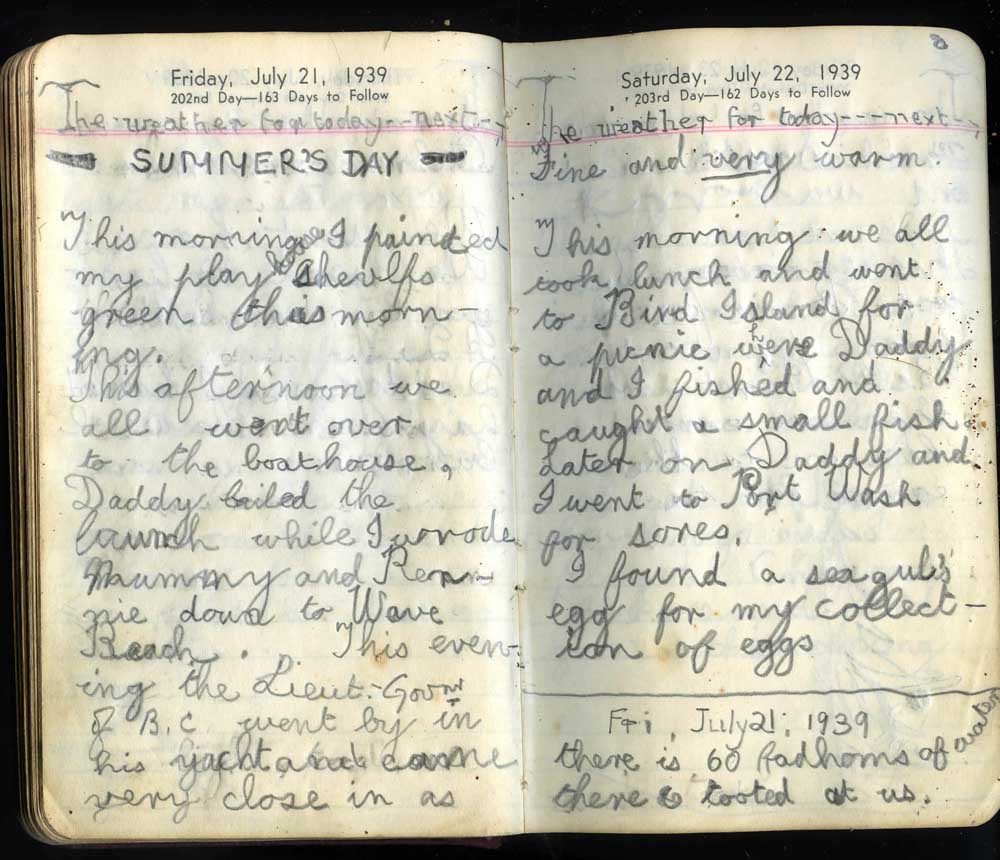 Friday, July 21, 1939
202nd Day—163 Days to Follow
The weather for today--next--
SUMMER'S DAY
This morning I painted
my play house shevlfs
green this morn-
ing.
This afternoon we
all went over
to the boathouse,
Daddy bailed the
launch while I wrode
Mummy and Ren-
nie down to Wave
Beach. This even-
ing the Lieut.-Govnr
of B.C. went by in
his yacht and came
very close in as
Saturday, July 22, 1939
203rd Day—162 Days to Follow
The weather for today---next-
Fine and very warm.
This morning we all
took lunch and went
to Bird Island for
a picnic where Daddy
and I fished and
caught a small fish.
Later on, Daddy and
I went to Port Wash
for sores.
I found a sea gul's
egg for my collect-
ion of eggs
Fri, July 21, 1939
there is 60 fadhoms of water
there & tooted at us.